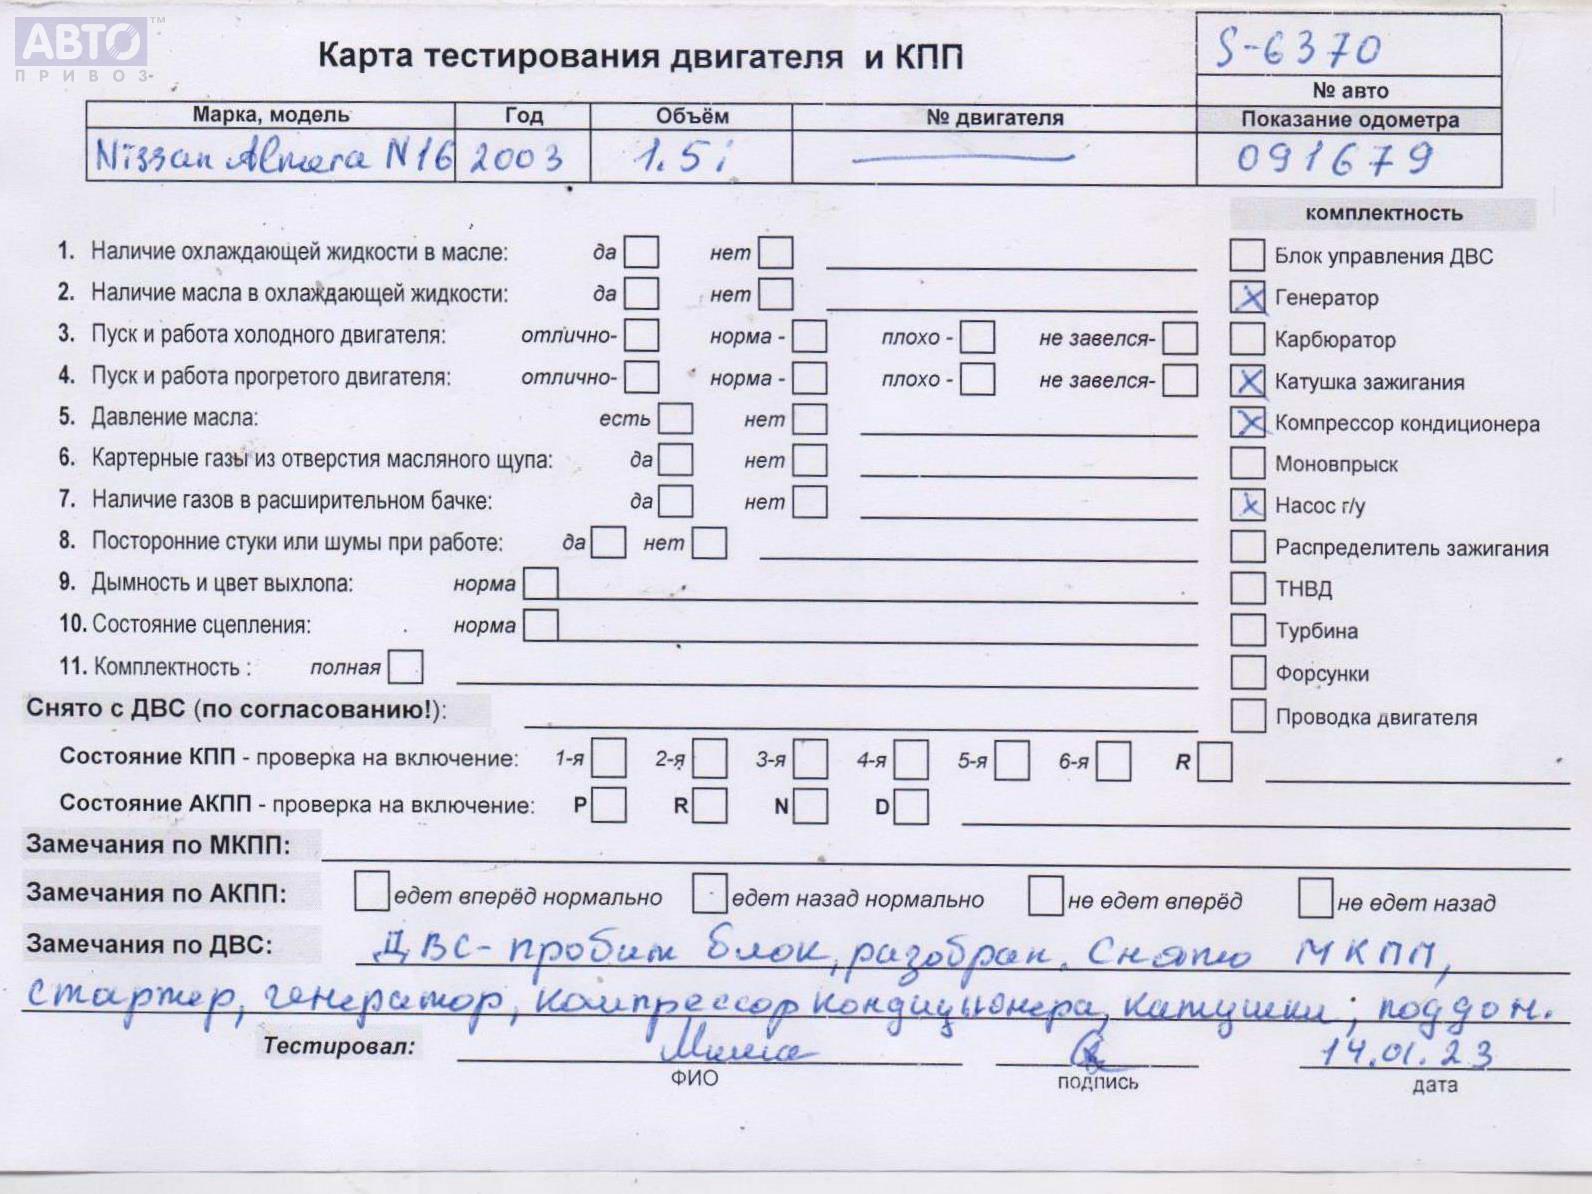 АВТО™
ПРИВОЗ
Карта тестирования двигателя и КПП
S-6370
№ авто
Марка, модель Год Объём № двигателя Показание одометра
Nissan Almera N16 2003 1.5i — 091679
комплектность
1. Наличие охлаждающей жидкости в масле: да нет
Блок управления ДВС
2. Наличие масла в охлаждающей жидкости: да нет
Генератор
3. Пуск и работа холодного двигателя: отлично- норма - плохо - не завелся-
Карбюратор
4. Пуск и работа прогретого двигателя: отлично- норма - плохо - не завелся-
Катушка зажигания
5. Давление масла: есть нет
Компрессор кондиционера
6. Картерные газы из отверстия масляного щупа: да нет
Моновпрыск
7. Наличие газов в расширительном бачке: да нет
Насос г/у
8. Посторонние стуки или шумы при работе: да нет
Распределитель зажигания
9. Дымность и цвет выхлопа: норма
ТНВД
10. Состояние сцепления: норма
Турбина
11. Комплектность : полная
Форсунки
Снято с ДВС (по согласованию!):
Проводка двигателя
Состояние КПП - проверка на включение: 1-я 2-я 3-я 4-я 5-я 6-я R
Состояние АКПП - проверка на включение: P R N D
Замечания по МКПП:
Замечания по АКПП: едет вперёд нормально едет назад нормально не едет вперёд не едет назад
Замечания по ДВС: ДВС - пробит блок, разобран. Снято МКПП,
стартер, генератор, компрессор кондиционера, катушки, поддон.
Тестировал: 14.01.23
ФИО подпись дата